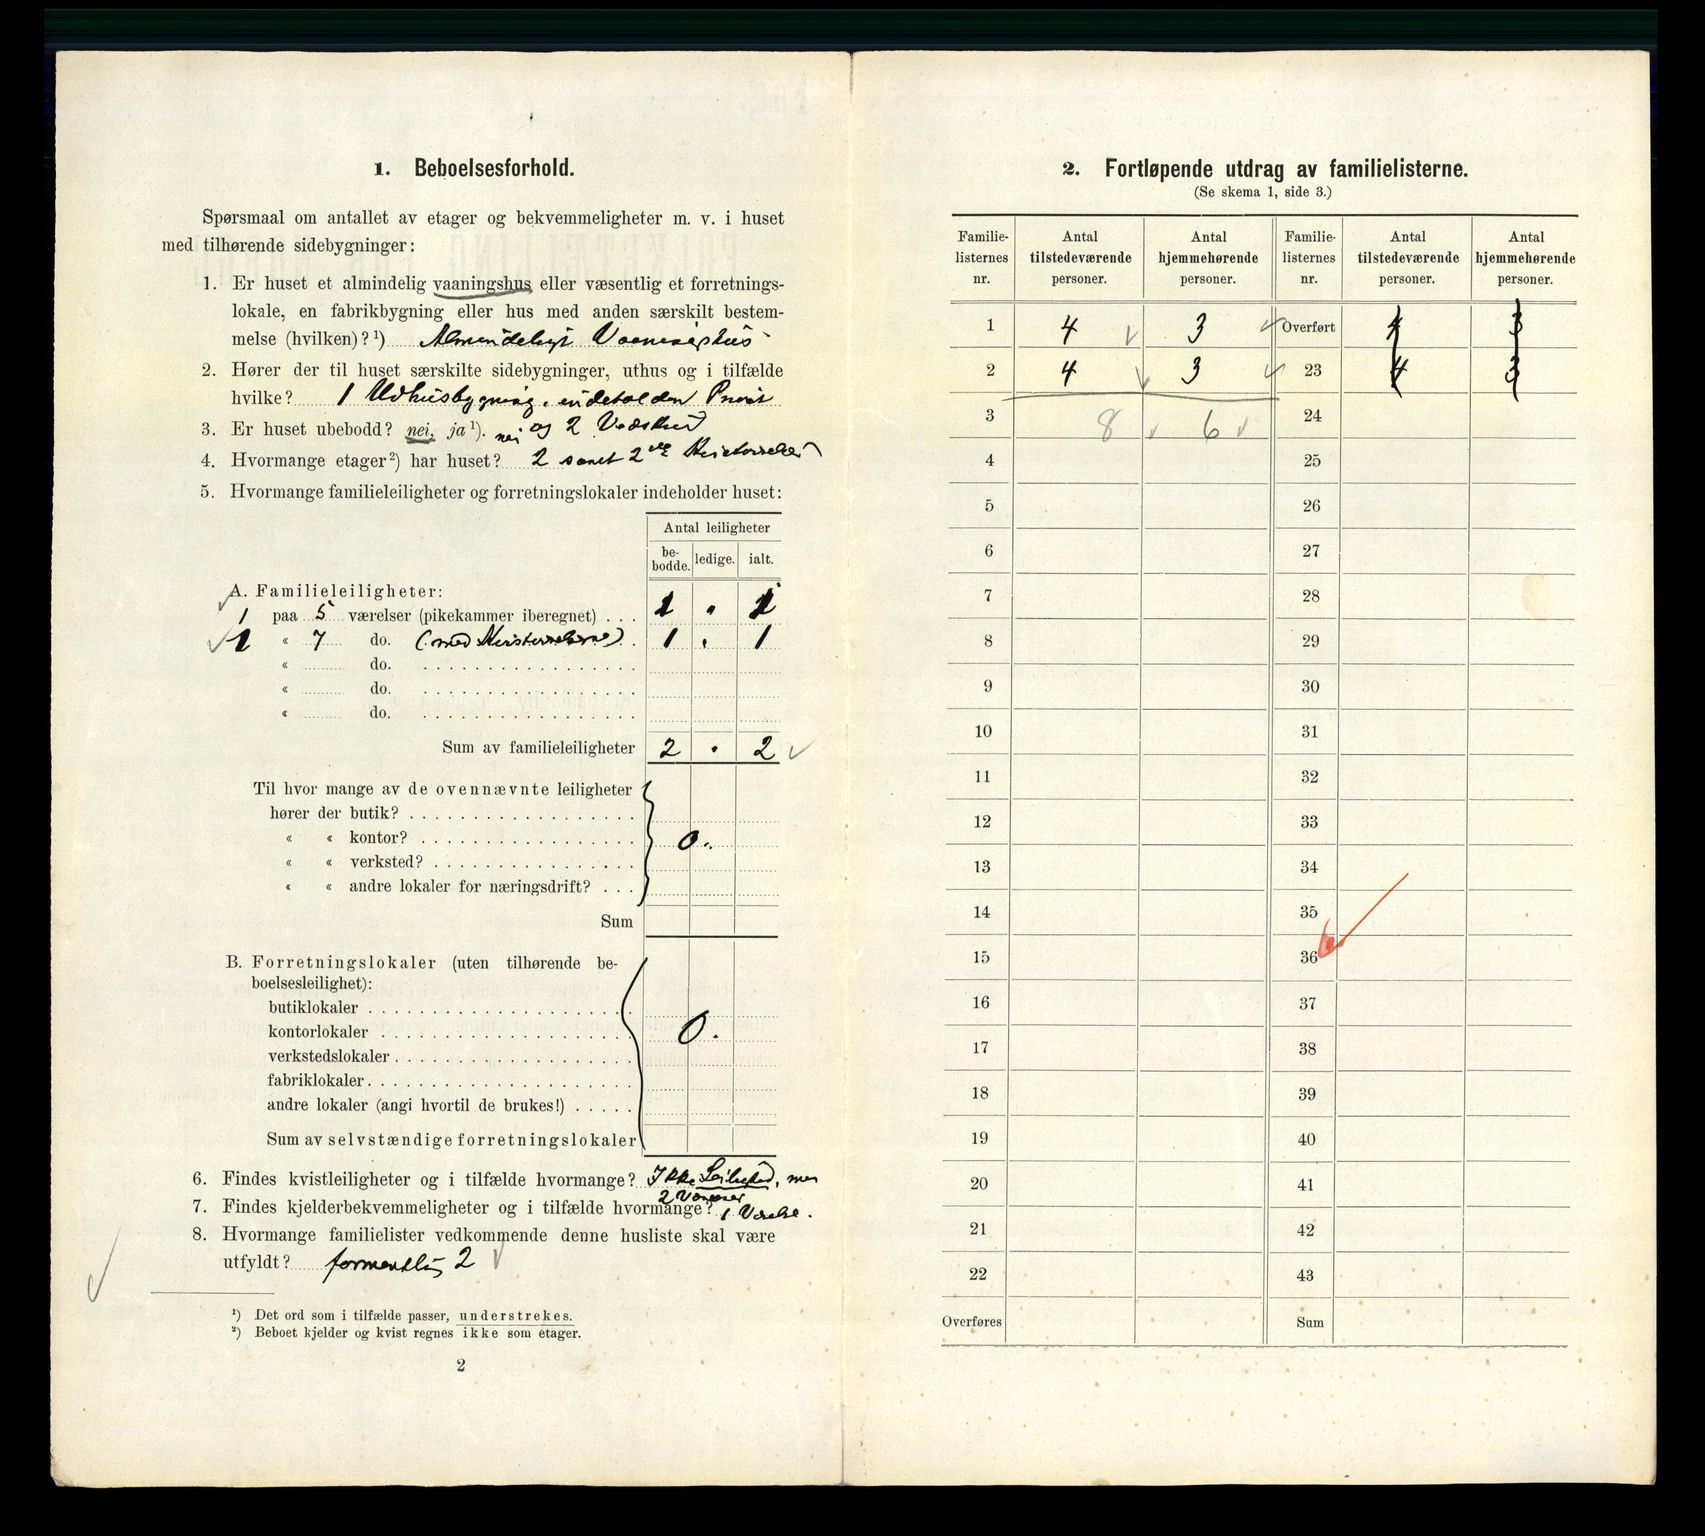 1. Beboelsesforhold.
Spørsmaal om antallet av etager og bekvemmeligheter m. v. i huset
med tilhørende sidebygninger:
1. Er huset et almindelig vaaningshus eller væsentlig et forretnings-
lokale, en fabrikbygning eller hus med anden særskilt bestem-
melse (hvilken)?¹) Almindeligt Vaaningshus
2. Hører der til huset særskilte sidebygninger, uthus og i tilfælde
hvilke? 1 Udhusbygning, indeholden Privet
3. Er huset ubebodd? nei, ja¹). nei og 2 Vedskud
4. Hvormange etager²) har huset? 2 samt 2
5. Hvormange familieleiligheter og forretningslokaler indeholder huset:
Antal leiligheter
be-bodde. ledige. ialt.
A. Familieleiligheter:
1 paa 5 værelser (pikekammer iberegnet) . . . 1 " 1
1 « 7 do. (med . 1 . 1
« do.
« do.
« do.
Sum av familieleiligheter 2 . 2
Til hvor mange av de ovennævnte leiligheter
hører der butik?
« « kontor? 0.
« « verksted?
« « andre lokaler for næringsdrift?
Sum
B. Forretningslokaler (uten tilhørende be-
boelsesleilighet):
butiklokaler
kontorlokaler 0.
verkstedslokaler
fabriklokaler
andre lokaler (angi hvortil de brukes!)
Sum av selvstændige forretningslokaler
6. Findes kvistleiligheter og i tilfælde hvormange? Ikke Leilighed, men
2 Værelser
7. Findes kjelderbekvemmeligheter og i tilfælde hvormange? 1 Værelse.
8. Hvormange familielister vedkommende denne husliste skal være
utfyldt? formentlig 2
¹) Det ord som i tilfælde passer, understrekes.
²) Beboet kjelder og kvist regnes ikke som etager.
2
2. Fortløpende utdrag av familielisterne.
(Se skema 1, side 3.)
Familie-listernes nr. Antal tilstedeværende personer. Antal hjemmehørende personer. Familie-listernes nr. Antal tilstedeværende personer. Antal hjemmehørende personer.
1 4 3 Overført 4 3
2 4 3 23 4 3
3 8 6 24
4 25
5 26
6 27
7 28
8 29
9 30
10 31
11 32
12 33
13 34
14 35
15 36
16 37
17 38
18 39
19 40
20 41
21 42
22 43
Overføres Sum